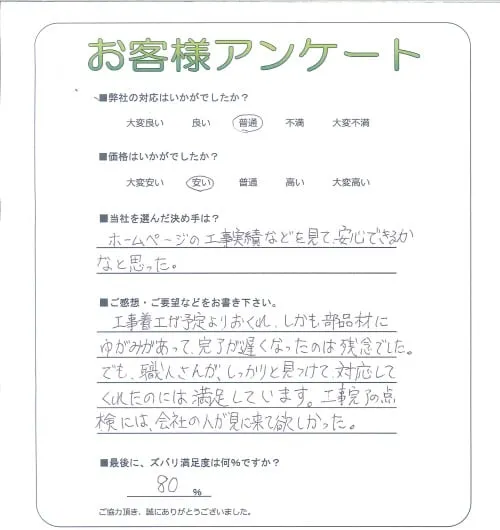 お客様アンケート
■弊社の対応はいかがでしたか？
大変良い 良い 普通 不満 大変不満
■価格はいかがでしたか？
大変安い 安い 普通 高い 大変高い
■当社を選んだ決め手は？
ホームページの工事実績などを見て、安心できるか
なと思った。
■ご感想・ご要望などをお書き下さい。
工事着工が予定よりおくれ、しかも部品材に
ゆがみがあって、完了が遅くなったのは残念でした。
でも、職人さんが、しっかりと見つけて、対応して
くれたのには満足しています。工事完了の点
検には、会社の人が見に来て欲しかった。
■最後に、ズバリ満足度は何%ですか？
80 %
ご協力頂き、誠にありがとうございました。